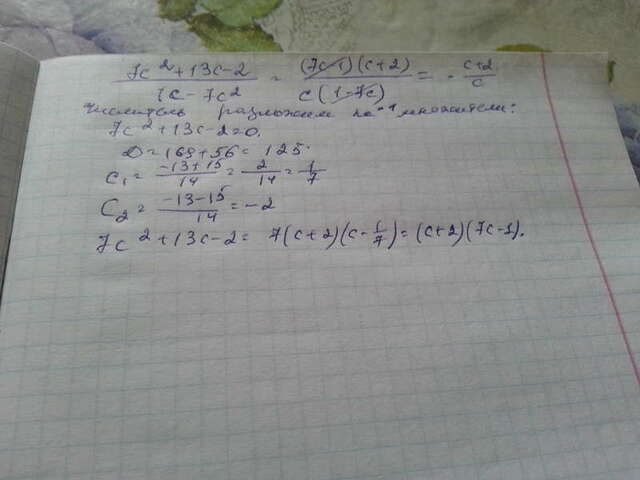 (7c² + 13c - 2)/(1c - 7c²) = ((7c-1)(c+2))/(c(1-7c)) = - (c+2)/c
Числитель разложим на множители:
7c² + 13c - 2 = 0.
D = 169 + 56 = 125.
c₁ = (-13+15)/14 = 2/14 = 1/7
C₂ = (-13-15)/14 = -2
7c² + 13c - 2 = 7(c+2)(c - 1/7) = (c+2)(7c-1).